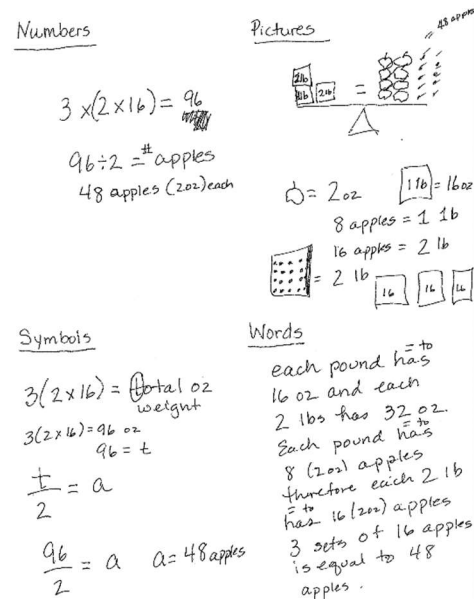 Numbers
3 x(2 x16) = 96
96÷2 = # apples
48 apples (2oz) each
Pictures
48 apples
2lb
2lb 2lb =
= 2 oz
1 lb = 16oz
8 apples = 1 lb
16 apples = 2 lb
= 2 lb
16 16 16
Symbols
3(2x16) = total oz
weight
3(2x16)=96 oz
96 = t
t/2 = a
96/2 = a a=48apples
Words
= to
each pound has
16 oz and each
2 lbs has 32 oz.
= to
Each pound has
8 (2oz) apples
therefore each 2 lb
= to
has 16 (2oz) apples
3 sets of 16 apples
is equal to 48
apples.